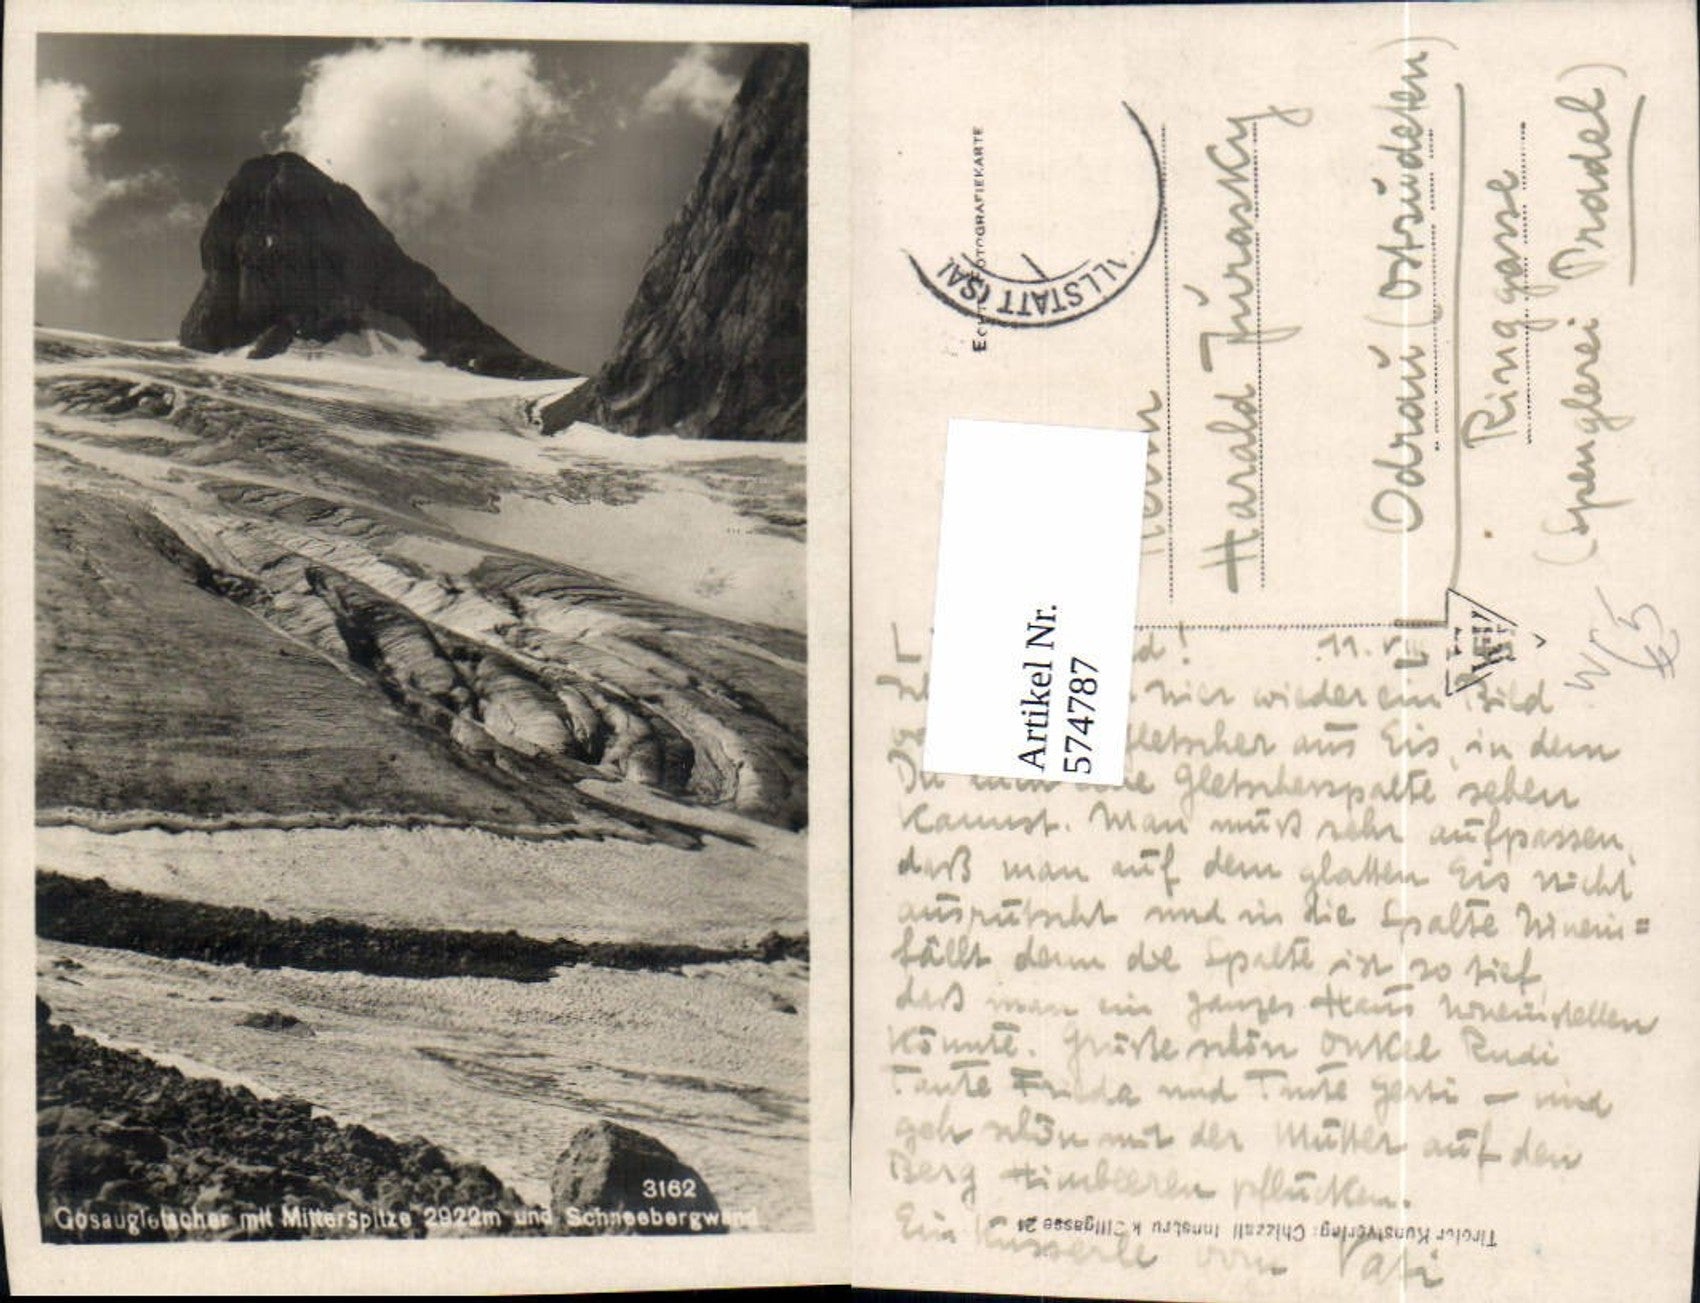 3162
Gosaugletscher mit Mitterspitze 2922m und Schneebergwand
ECHTE FOTOGRAFIEKARTE
ALLSTATT (SA
Herrn
Harald Jurasky
Odrau (Ostsudeten)
Ringgasse
(Spenglerei Pradel)
Artikel Nr.
574787
W
65
11. VII
hier wieder ein Bild
Gletscher aus Eis, in dem
Du auch eine Gletscherspalte sehen
kannst. Man muß sehr aufpassen,
daß man auf dem glatten Eis nicht
ausrutscht und in die Spalte hinein=
fällt denn die Spalte ist so tief,
daß man ein ganzes Haus hineinstellen
könnte. Grüße schön Onkel Rudi
Tante Frieda und Tante Gerti – und
geh schön mit der Mutter auf den
Berg Himbeeren pflücken.
Ein Kusserle vom Vati
Tiroler Kunstverlag: Chizzali Innsbruck Sillgasse 21